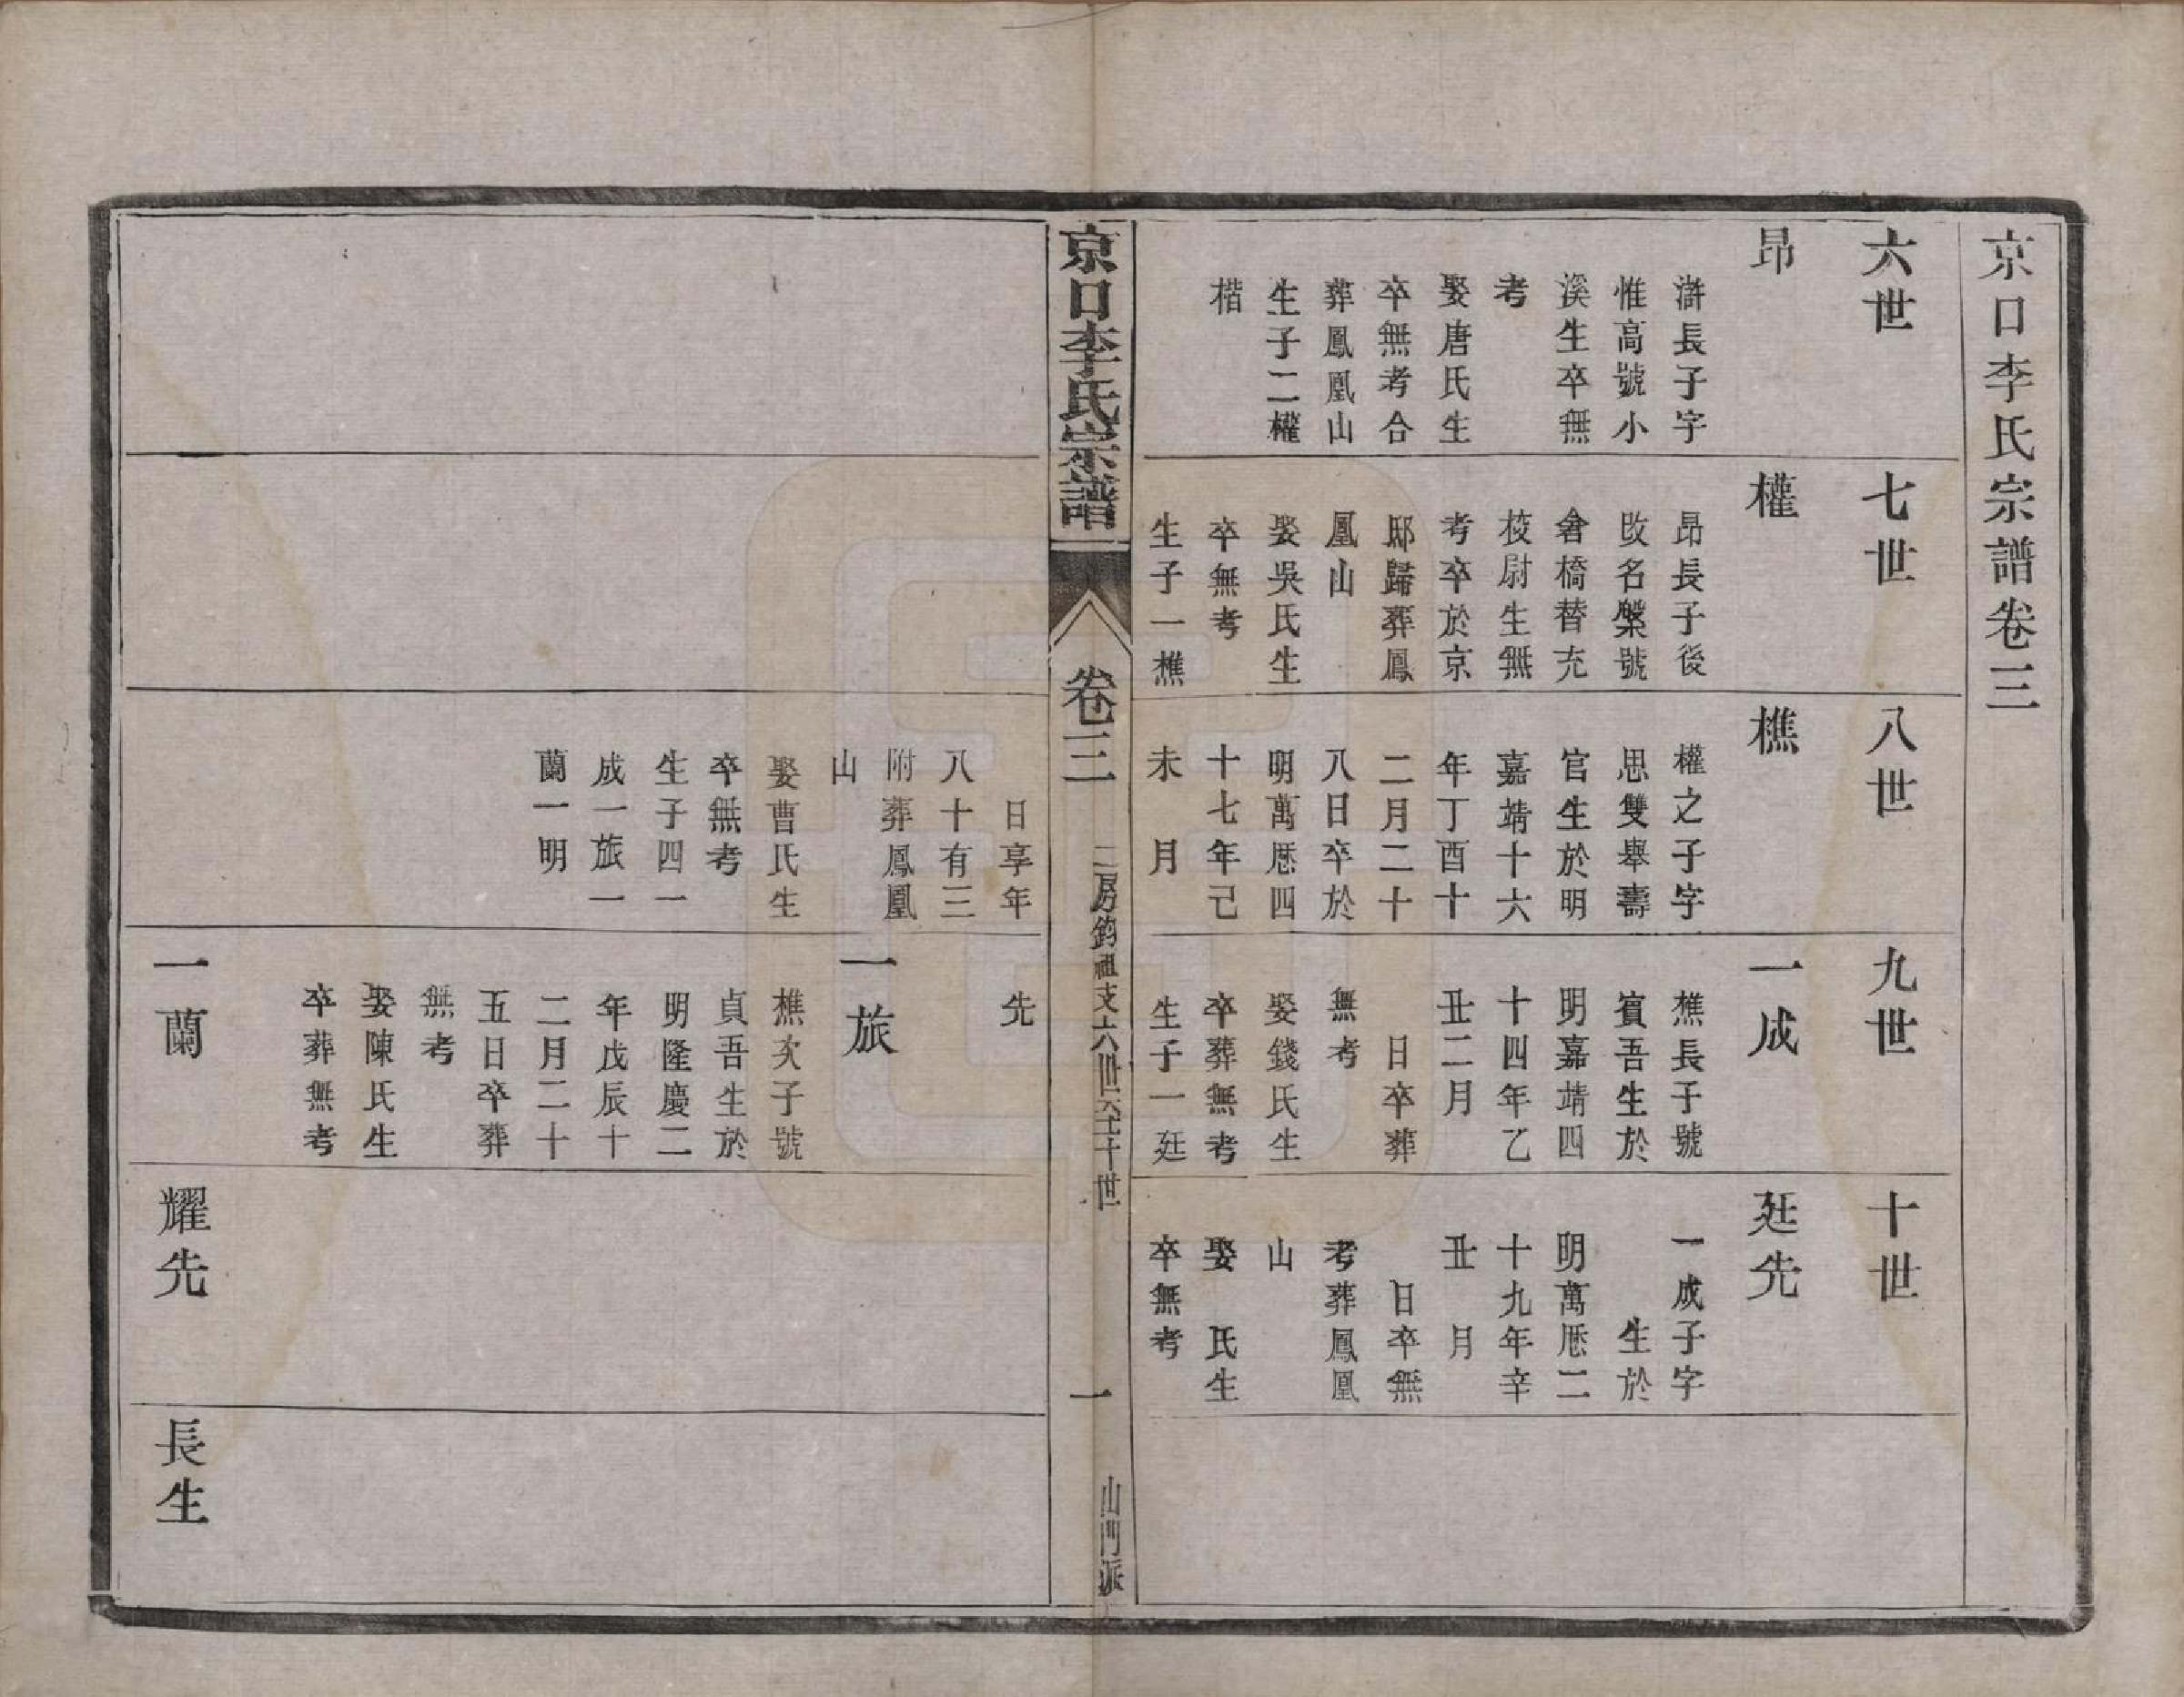 京口李氏宗譜卷三
六世
七世
八世
九世
十世
昂
澣長子字
惟高號小
溪生卒無
考
娶唐氏生
卒無考合
葬鳳凰山
生子二權
楷
權
昂長子後
改名槃號
會橋替充
校尉生無
考卒於京
邸歸葬鳳
凰山
娶吳氏生
卒無考
生子一樵
樵
權之子字
思雙舉壽
官生於明
嘉靖十六
年丁酉十
二月二十
八日卒於
明萬厯四
十七年己
未 月
一成
樵長子號
賓吾生於
明嘉靖四
十四年乙
丑二月
日卒葬
無考
娶錢氏生
卒葬無考
生子一廷
廷先
一成子字
生於
明萬厯二
十九年辛
丑 月
日卒無
考葬鳳凰
山
娶 氏生
卒無考
京口李氏宗譜
卷三
二房鈞祖支六世至十世
一
山門派
日享年
八十有三
附葬鳳凰
山
娶曹氏生
卒無考
生子四一
成一旅一
蘭一明
先
一旅
樵次子號
貞吾生於
明隆慶二
年戊辰十
二月二十
五日卒葬
無考
娶陳氏生
卒葬無考
一蘭
耀先
長生